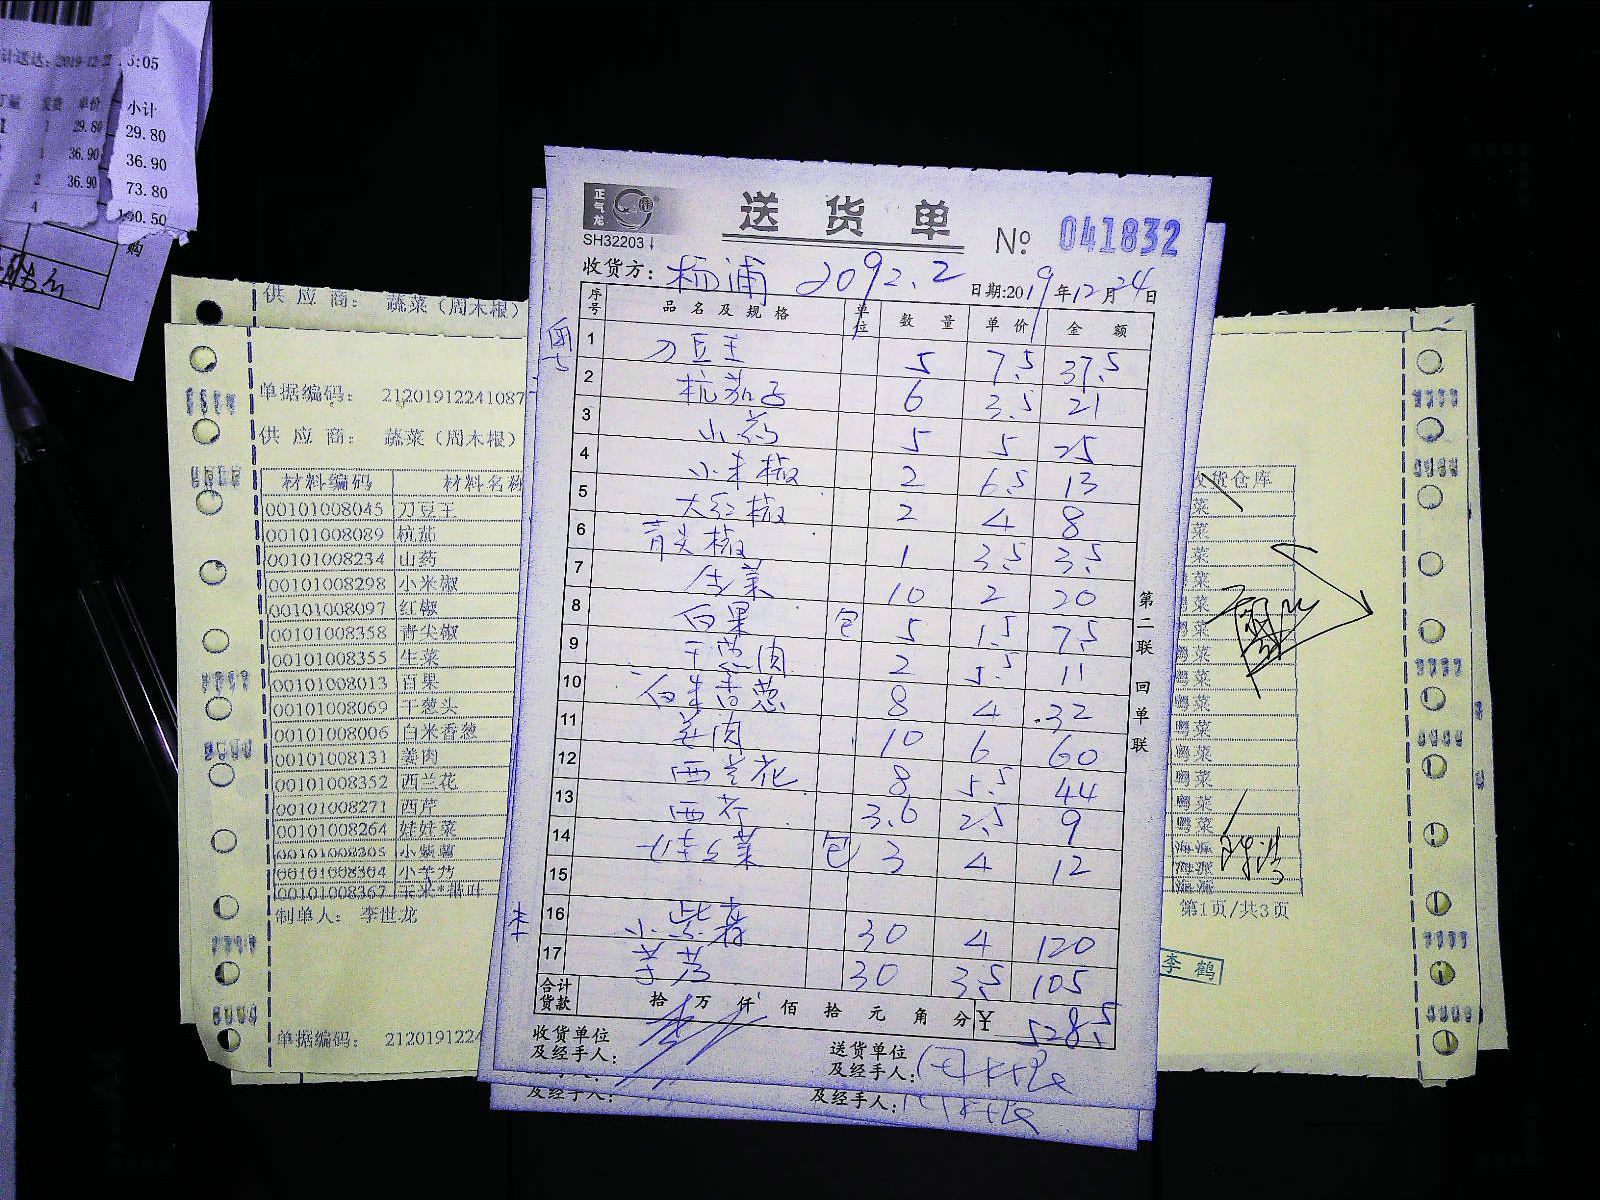 小计
29.80
29.80
1 36.90
36.90
2 36.90
73.80
4
购
供应商： 蔬菜（周木根）
单据编码： 2120191224108
供应商： 蔬菜（周木根）
材料编码 材料名称
00101008045 刀豆王
00101008089 杭茄
00101008234 山药
00101008298 小米椒
00101008097 红椒
00101008358 青尖椒
00101008355 生菜
00101008013 百果
00101008069 干葱头
00101008006 白米香葱
00101008131 姜肉
00101008352 西兰花
00101008271 西芹
00101008264 娃娃菜
00101008305 小紫薯
00101008304 小芋艿
00101008367
制单人： 李世龙
单据编码： 2120191224
正气龙
SH32203
送货单 № 041832
收货方：杨浦 2092.2 日期:2019年12月24日
序号 品名及规格 单位 数量 单价 金额
粤
1 刀豆王 5 7.5 37.5
2 杭茄子 6 3.5 21
3 山药 5 5 25
4 小米椒 2 6.5 13
5 大红椒 2 4 8
6 青尖椒 1 3.5 3.5
7 生菜 10 2 20
8 白果 包 5 1.5 7.5
9 干葱肉 2 5.5 11
10 白米香葱 8 4 32
11 姜肉 10 6 60
12 西兰花 8 5.5 44
13 西芹 3.6 2.5 9
14 娃娃菜 包 3 4 12
15
16 小紫薯 30 4 120
17 芋艿 30 3.5 105
合计货款 拾 万 仟 佰 拾 元 角 分 ¥ 528.5
收货单位及经手人：
送货单位及经手人：
及经手人：
及经手人：
第二联 回单联
收货仓库
菜
菜
菜
菜
菜
粤菜
粤菜
粤菜
粤菜
粤菜
粤菜
粤菜
粤菜
粤菜
海派
海派
海派
第1页/共3页
李鹤